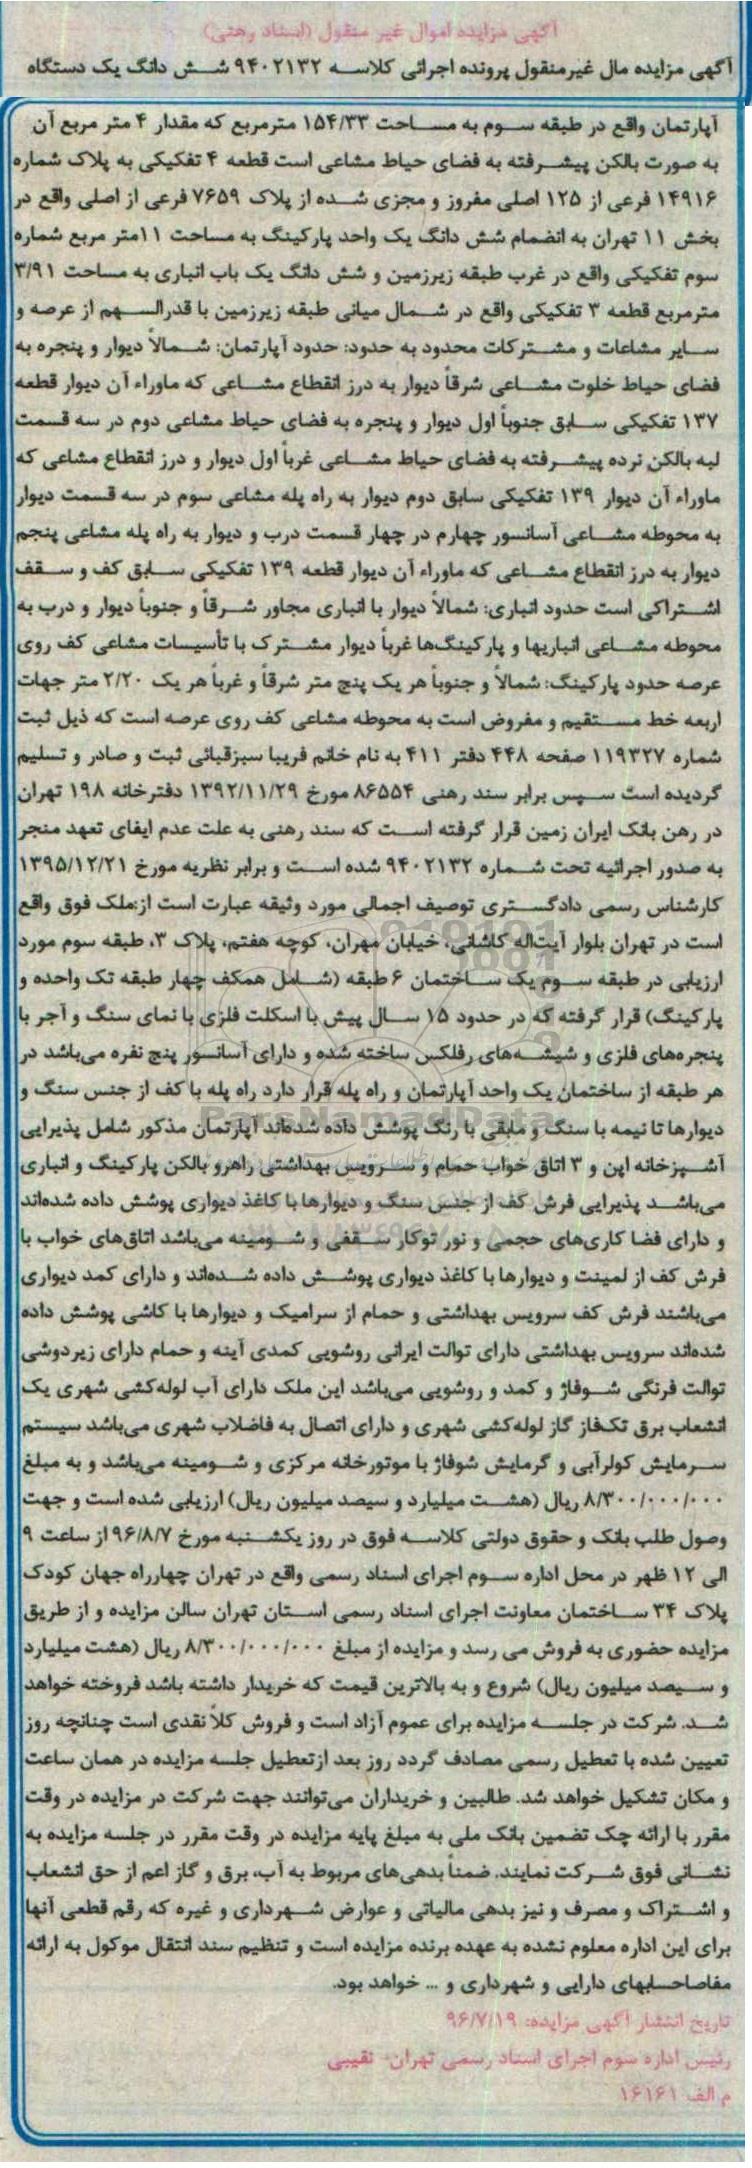 آگهی مزایده اموال غیر منقول (اسناد رهنی)
آگهی مزایده مال غیرمنقول پرونده اجرائی کلاسه ۹۴۰۲۱۳۲ شش دانگ یک دستگاه
آپارتمان واقع در طبقه سوم به مساحت ۱۵۴/۳۳ مترمربع که مقدار ۴ متر مربع آن
به صورت بالکن پیشرفته به فضای حیاط مشاعی است قطعه ۴ تفکیکی به پلاک شماره
۱۴۹۱۶ فرعی از ۱۲۵ اصلی مفروز و مجزی شده از پلاک ۷۶۵۹ فرعی از اصلی واقع در
بخش ۱۱ تهران به انضمام شش دانگ یک واحد پارکینگ به مساحت ۱۱متر مربع شماره
سوم تفکیکی واقع در غرب طبقه زیرزمین و شش دانگ یک باب انباری به مساحت ۳/۹۱
مترمربع قطعه ۳ تفکیکی واقع در شمال میانی طبقه زیرزمین با قدرالسهم از عرصه و
سایر مشاعات و مشترکات محدود به حدود: حدود آپارتمان: شمالاً دیوار و پنجره به
فضای حیاط خلوت مشاعی شرقاً دیوار به درز انقطاع مشاعی که ماوراء آن دیوار قطعه
۱۳۷ تفکیکی سابق جنوباً اول دیوار و پنجره به فضای حیاط مشاعی دوم در سه قسمت
لبه بالکن نرده پیشرفته به فضای حیاط مشاعی غرباً اول دیوار و درز انقطاع مشاعی که
ماوراء آن دیوار ۱۳۹ تفکیکی سابق دوم دیوار به راه پله مشاعی سوم در سه قسمت دیوار
به محوطه مشاعی آسانسور چهارم در چهار قسمت درب و دیوار به راه پله مشاعی پنجم
دیوار به درز انقطاع مشاعی که ماوراء آن دیوار قطعه ۱۳۹ تفکیکی سابق کف و سقف
اشتراکی است حدود انباری: شمالاً دیوار با انباری مجاور شرقاً و جنوباً دیوار و درب به
محوطه مشاعی انباریها و پارکینگ‌ها غرباً دیوار مشترک با تأسیسات مشاعی کف روی
عرصه حدود پارکینگ: شمالاً و جنوباً هر یک پنج متر شرقاً و غرباً هر یک ۲/۲۰ متر جهات
اربعه خط مستقیم و مفروض است به محوطه مشاعی کف روی عرصه است که ذیل ثبت
شماره ۱۱۹۳۲۷ صفحه ۴۴۸ دفتر ۴۱۱ به نام خانم فریبا سبزقبائی ثبت و صادر و تسلیم
گردیده است سپس برابر سند رهنی ۸۶۵۵۴ مورخ ۱۳۹۲/۱۱/۲۹ دفترخانه ۱۹۸ تهران
در رهن بانک ایران زمین قرار گرفته است که سند رهنی به علت عدم ایفای تعهد منجر
به صدور اجرائیه تحت شماره ۹۴۰۲۱۳۲ شده است و برابر نظریه مورخ ۱۳۹۵/۱۲/۲۱
کارشناس رسمی دادگستری توصیف اجمالی مورد وثیقه عبارت است از:ملک فوق واقع
است در تهران بلوار آیت‌اله کاشانی، خیابان مهران، کوچه هفتم، پلاک ۳، طبقه سوم مورد
ارزیابی در طبقه سوم یک ساختمان ۶ طبقه (شامل همکف چهار طبقه تک واحده و
پارکینگ) قرار گرفته که در حدود ۱۵ سال پیش با اسکلت فلزی با نمای سنگ و آجر با
پنجره‌های فلزی و شیشه‌های رفلکس ساخته شده و دارای آسانسور پنج نفره می‌باشد در
هر طبقه از ساختمان یک واحد آپارتمان و راه پله قرار دارد راه پله با کف از جنس سنگ و
دیوارها تا نیمه با سنگ و مابقی با رنگ پوشش داده شده‌اند آپارتمان مذکور شامل پذیرایی
آشپزخانه اپن و ۳ اتاق خواب حمام و سرویس بهداشتی راهرو بالکن پارکینگ و انباری
می‌باشد پذیرایی فرش کف از جنس سنگ و دیوارها با کاغذ دیواری پوشش داده شده‌اند
و دارای فضا کاری‌های حجمی و نور توکار سقفی و شومینه می‌باشد اتاق‌های خواب با
فرش کف از لمینت و دیوارها با کاغذ دیواری پوشش داده شده‌اند و دارای کمد دیواری
می‌باشند فرش کف سرویس بهداشتی و حمام از سرامیک و دیوارها با کاشی پوشش داده
شده‌اند سرویس بهداشتی دارای توالت ایرانی روشویی کمدی آینه و حمام دارای زیردوشی
توالت فرنگی شوفاژ و کمد و روشویی می‌باشد این ملک دارای آب لوله‌کشی شهری یک
انشعاب برق تکفاز گاز لوله‌کشی شهری و دارای اتصال به فاضلاب شهری می‌باشد سیستم
سرمایش کولرآبی و گرمایش شوفاژ با موتورخانه مرکزی و شومینه می‌باشد و به مبلغ
۸/۳۰۰/۰۰۰/۰۰۰ ریال (هشت میلیارد و سیصد میلیون ریال) ارزیابی شده است و جهت
وصول طلب بانک و حقوق دولتی کلاسه فوق در روز یکشنبه مورخ ۹۶/۸/۷ از ساعت ۹
الی ۱۲ ظهر در محل اداره سوم اجرای اسناد رسمی واقع در تهران چهارراه جهان کودک
پلاک ۳۴ ساختمان معاونت اجرای اسناد رسمی استان تهران سالن مزایده و از طریق
مزایده حضوری به فروش می رسد و مزایده از مبلغ ۸/۳۰۰/۰۰۰/۰۰۰ ریال (هشت میلیارد
و سیصد میلیون ریال) شروع و به بالاترین قیمت که خریدار داشته باشد فروخته خواهد
شد. شرکت در جلسه مزایده برای عموم آزاد است و فروش کلاً نقدی است چنانچه روز
تعیین شده با تعطیل رسمی مصادف گردد روز بعد ازتعطیل جلسه مزایده در همان ساعت
و مکان تشکیل خواهد شد. طالبین و خریداران می‌توانند جهت شرکت در مزایده در وقت
مقرر با ارائه چک تضمین بانک ملی به مبلغ پایه مزایده در وقت مقرر در جلسه مزایده به
نشانی فوق شرکت نمایند. ضمناً بدهی‌های مربوط به آب، برق و گاز اعم از حق انشعاب
و اشتراک و مصرف و نیز بدهی مالیاتی و عوارض شهرداری و غیره که رقم قطعی آنها
برای این اداره معلوم نشده به عهده برنده مزایده است و تنظیم سند انتقال موکول به ارائه
مفاصاحسابهای دارایی و شهرداری و ... خواهد بود.
تاریخ انتشار آگهی مزایده: ۹۶/۷/۱۹
رئیس اداره سوم اجرای اسناد رسمی تهران- نقیبی
م الف ۱۶۱۶۱
ParsNamadData